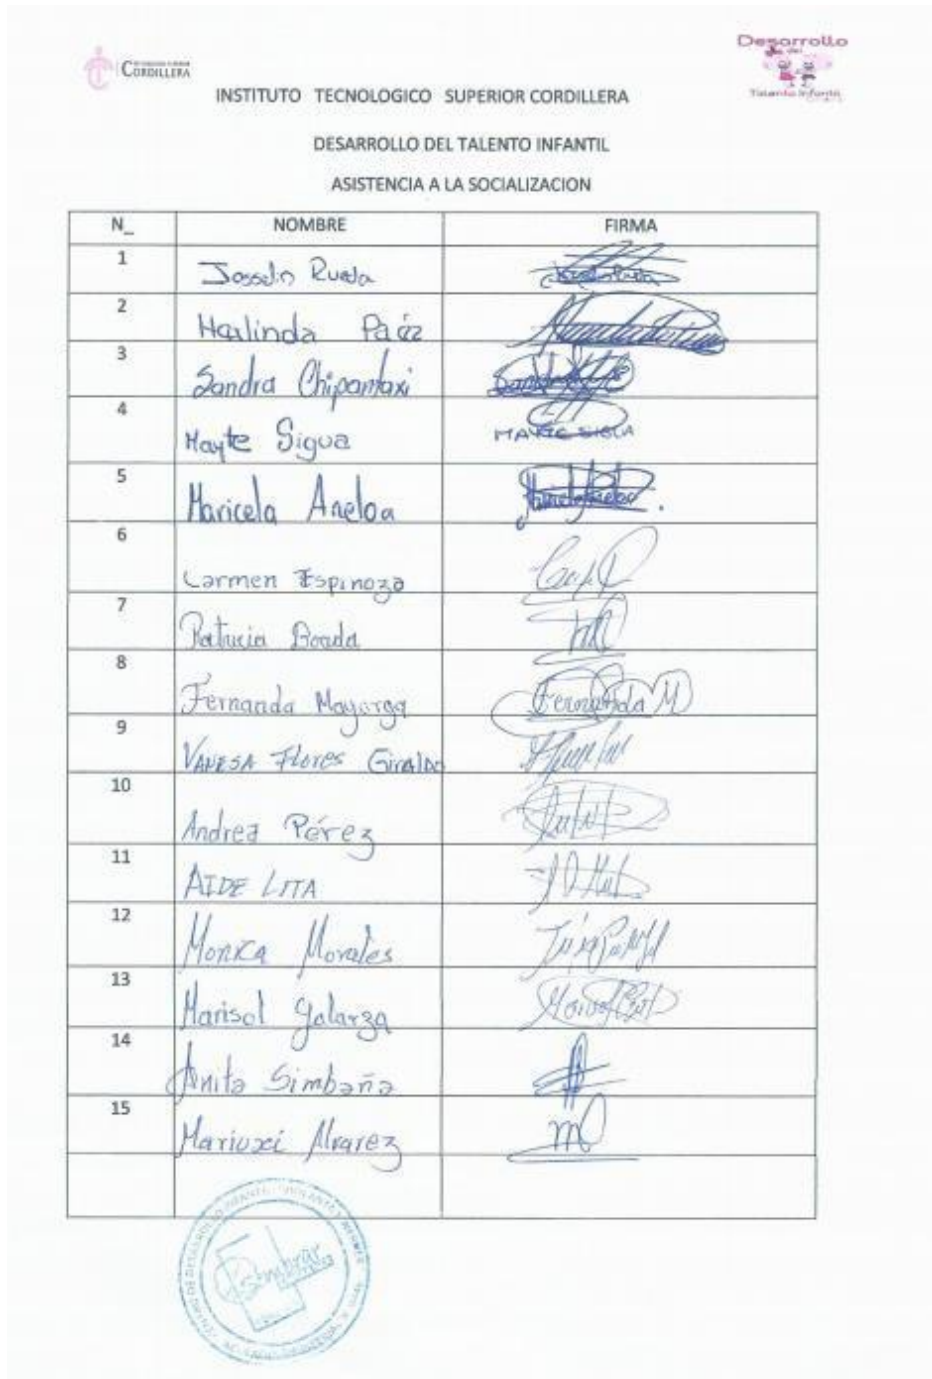 CORDILLERA
Desarrollo
del
Talento Infantil
INSTITUTO TECNOLOGICO SUPERIOR CORDILLERA
DESARROLLO DEL TALENTO INFANTIL
ASISTENCIA A LA SOCIALIZACION
N_ NOMBRE FIRMA
1 Josselin Rueda
2 Harlinda Paéz
3 Sandra Chipantaxi
4 Mayte Sigua MAYTE SIGUA
5 Maricela Aneloa
6 Carmen Espinoza
7 Patricia Boada
8 Fernanda Mayorga Fernanda M
9 VANESA Flores Giraldo
10 Andrea Pérez
11 AIDE LITA
12 Monica Morales
13 Marisol Galarza
14 Anita Simbaña
15 Mariuxi Alvarez
Sembrar